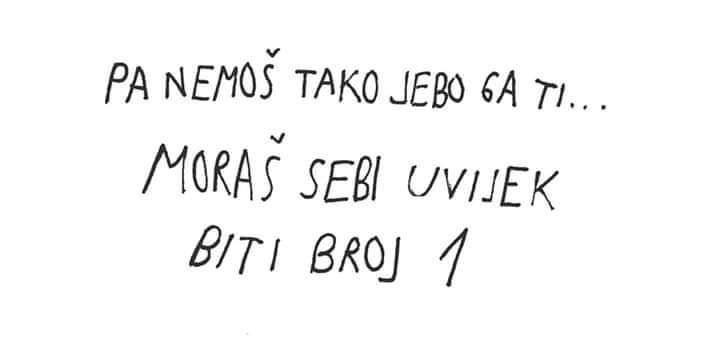 PA NEMOŠ TAKO JEBO GA TI...
MORAŠ SEBI UVIJEK
BITI BROJ 1